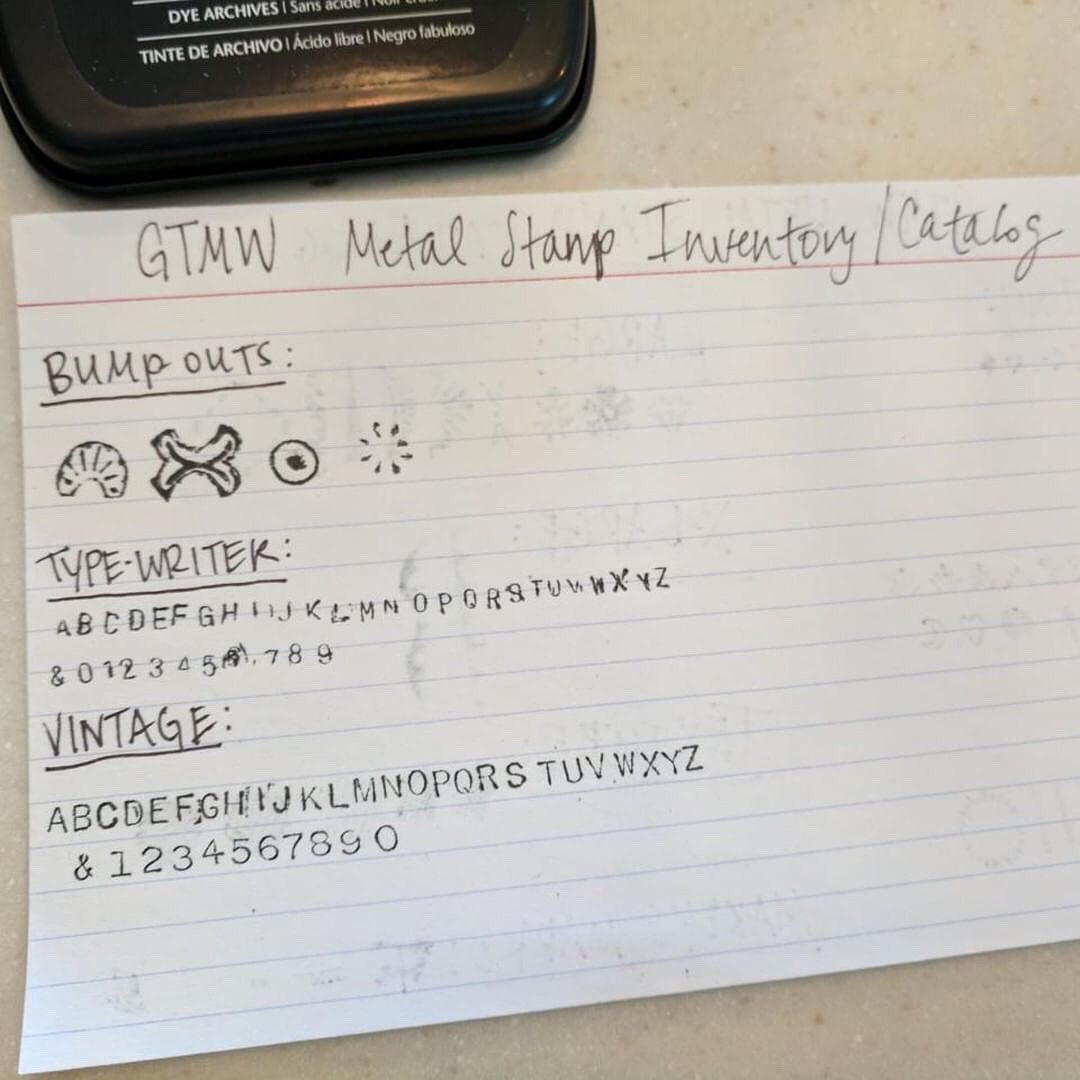 DYE ARCHIVES | Sans acide | Noir
TINTE DE ARCHIVO | Ácido libre | Negro fabuloso
GTMW Metal Stamp Inventory/Catalog
BUMP OUTS:
TYPE-WRITER:
ABCDEFGHIJKLMNOPQRSTUVWXYZ
& 0 1 2 3 4 5 7 8 9
VINTAGE:
ABCDEFGHIJKLMNOPQRSTUVWXYZ
& 1234567890